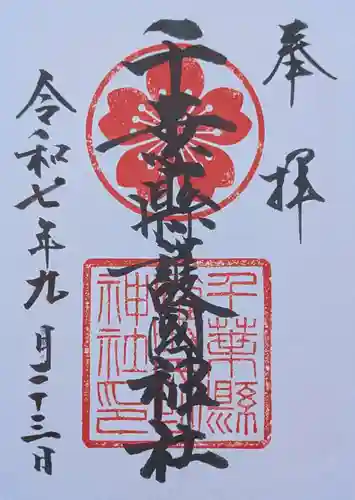 奉拝
千葉縣護國神社
令和七年九月二十三日
千葉縣
護國
神社印